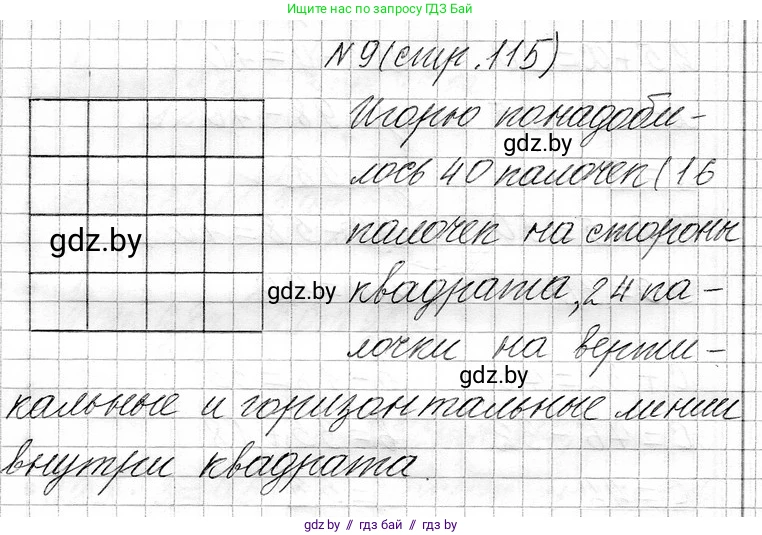 Ищите нас по запросу ГДЗ Бай
№9(стр.115)
Игорю понадоби-
gdz.by
лось 40 палочек (16
палочек на стороны
gdz.by
квадрата, 24 па-
gdz.by
лочки на верти-
gdz.by
кальные и горизонтальные линии
внутри квадрата
gdz.by // гдз бай // гдз by